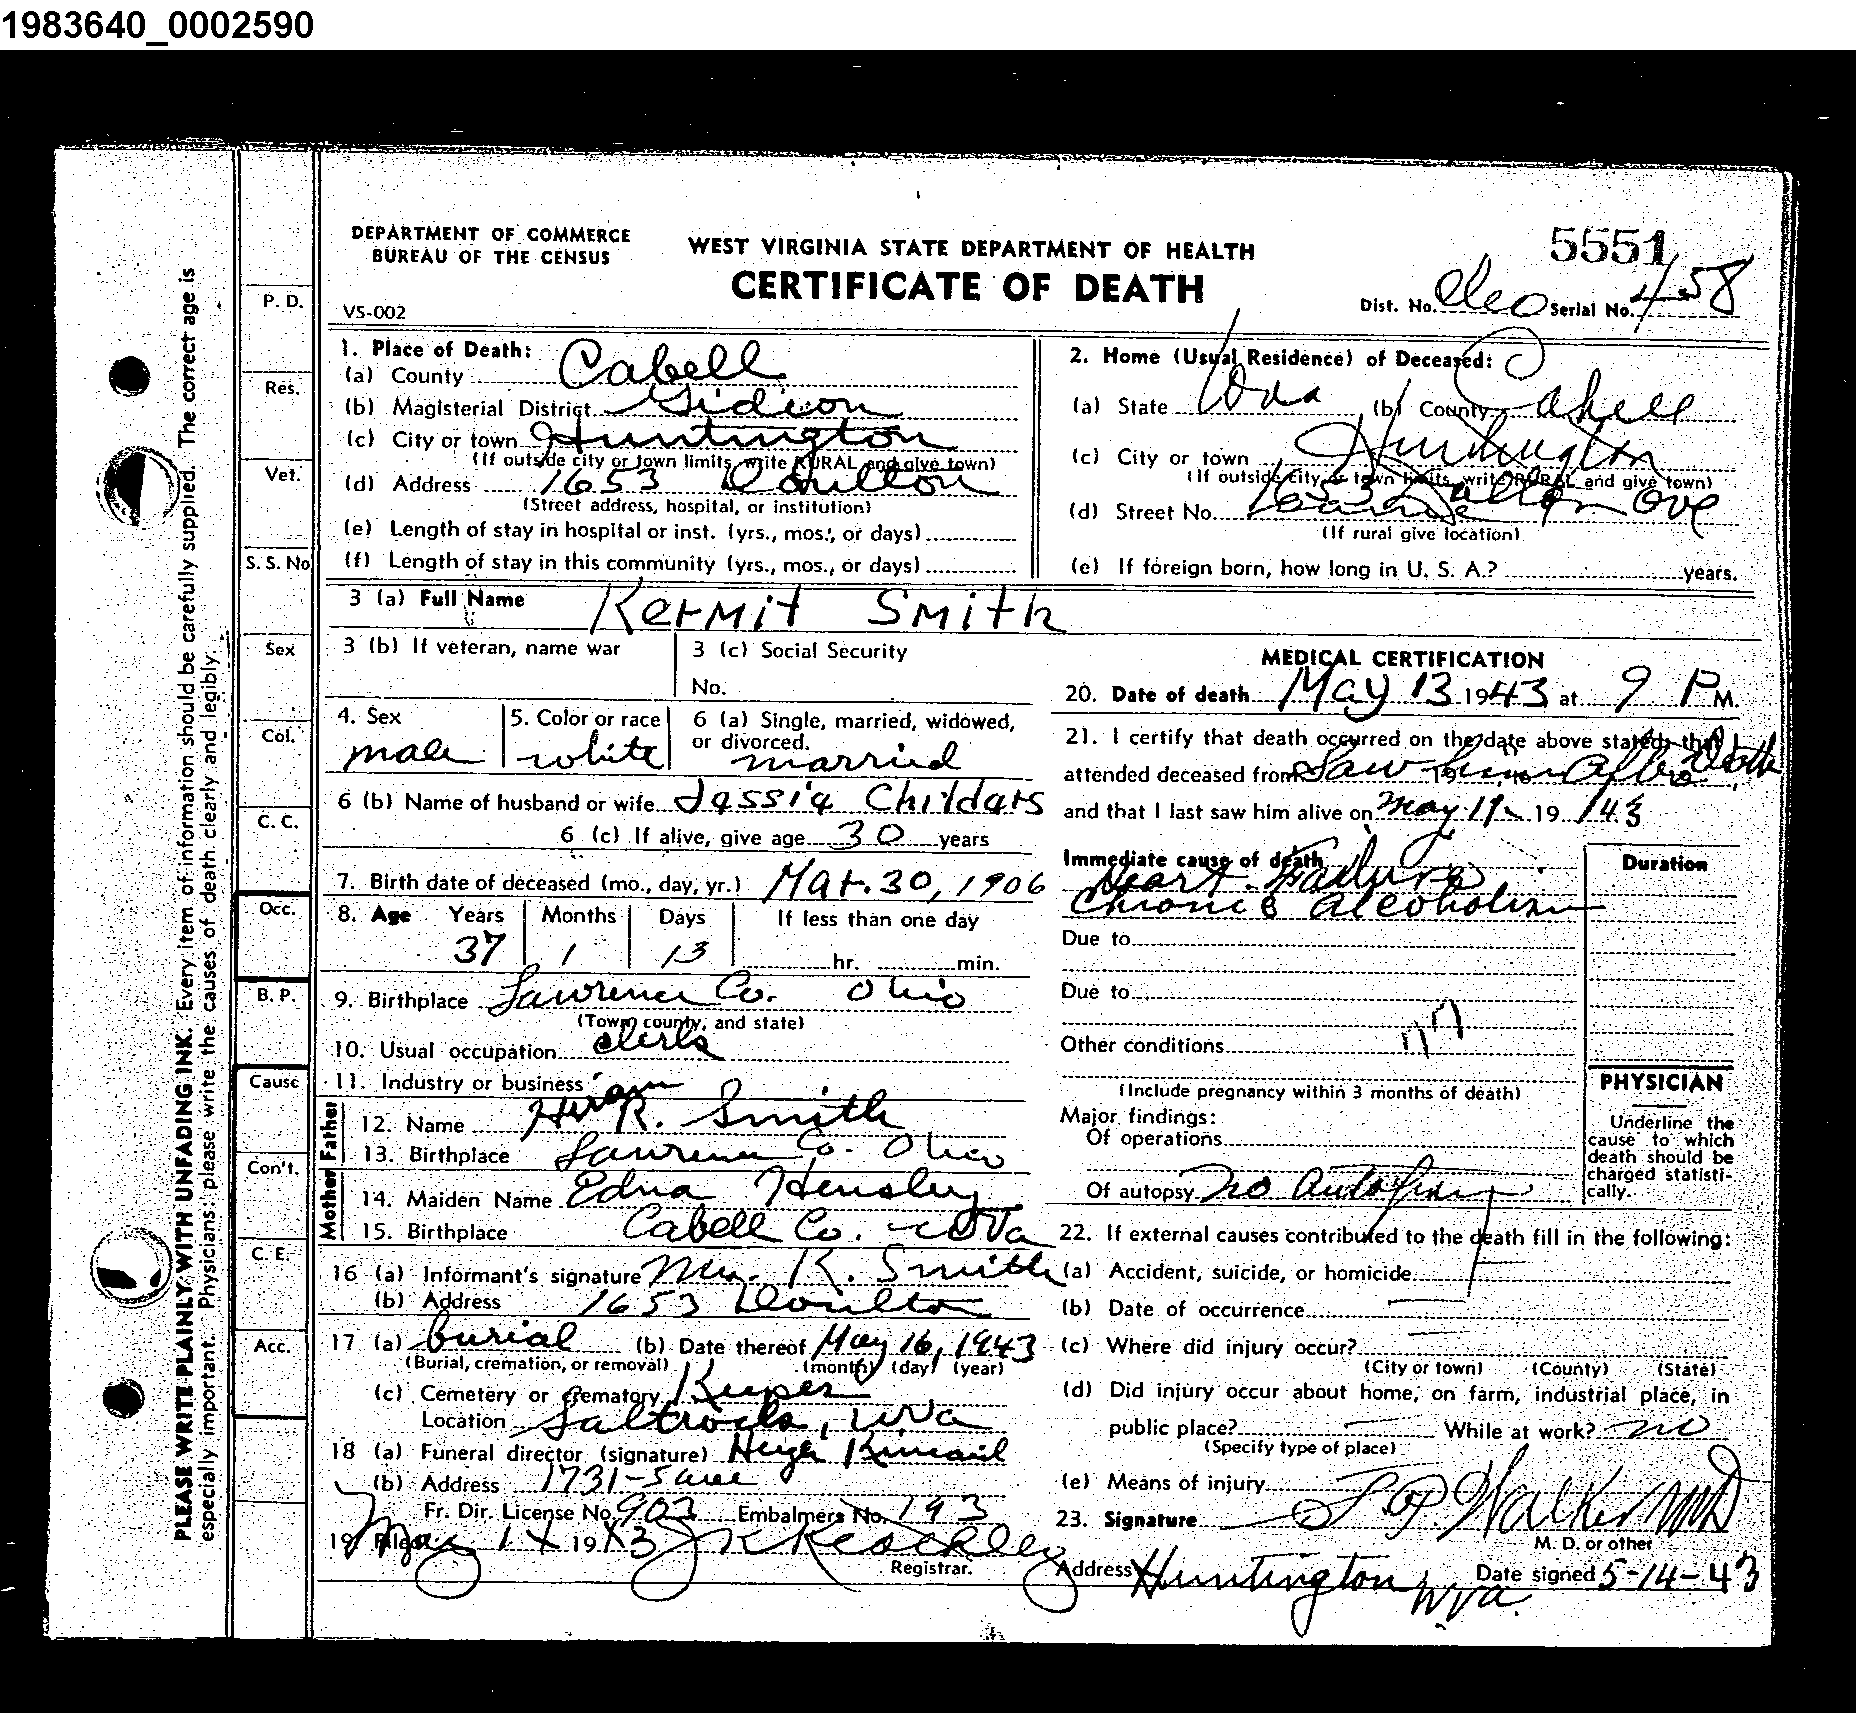 1983640_0002590
DEPARTMENT OF COMMERCE
BUREAU OF THE CENSUS
WEST VIRGINIA STATE DEPARTMENT OF HEALTH
CERTIFICATE OF DEATH
5551
VS-002
Dist. No. Serial No. 458
PLEASE WRITE PLAINLY WITH UNFADING INK. Every item of information should be carefully supplied. The correct age is
especially important. Physicians: please write the causes of death clearly and legibly.
P. D.
Res.
Vet.
S. S. No
Sex
Col.
C. C.
Occ.
B. P.
Cause
Con't.
C. E.
Acc.
1. Place of Death:
(a) County Cabell
(b) Magisterial District Gideon
(c) City or town Huntington
(If outside city or town limits, write RURAL and give town)
(d) Address 1653 Doulton
(Street address, hospital, or institution)
(e) Length of stay in hospital or inst. (yrs., mos., or days)
(f) Length of stay in this community (yrs., mos., or days)
2. Home (Usual Residence) of Deceased:
(a) State WVa (b) County Cabell
(c) City or town Huntington
(If outside city or town limits, write RURAL and give town)
(d) Street No. 1653 Ave
(If rural give location)
(e) If foreign born, how long in U. S. A.? years.
3 (a) Full Name Kermit Smith
3 (b) If veteran, name war
3 (c) Social Security
No.
4. Sex
male
5. Color or race
white
6 (a) Single, married, widowed,
or divorced.
married
6 (b) Name of husband or wife Jessie Childers
6 (c) If alive, give age 30 years
7. Birth date of deceased (mo., day, yr.) Mar. 30, 1906
8. Age Years Months Days If less than one day
37 1 13 hr. min.
9. Birthplace Lawrence Co. Ohio
(Town county, and state)
10. Usual occupation clerk
11. Industry or business
Father
12. Name Hiram R. Smith
13. Birthplace Lawrence Co. Ohio
Mother
14. Maiden Name Edna Hensley
15. Birthplace Cabell Co. WVa
16 (a) Informant's signature Mrs. K. Smith
(b) Address 1653 Doulton
17 (a) burial (b) Date thereof May 16, 1943
(Burial, cremation, or removal) (month) (day) (year)
(c) Cemetery or crematory
Location Saltrock, WVa
18 (a) Funeral director (signature)
(b) Address 1731-5 ave
Fr. Dir. License No. 903 Embalmers No. 193
19. Filed May 1943
Registrar.
MEDICAL CERTIFICATION
20. Date of death May 13 1943 at 9 P M.
21. I certify that death occurred on the date above stated; that I
attended deceased from Saw him After Death
and that I last saw him alive on May 11 1943
Immediate cause of death
Heart Failure
Chronic alcoholism
Duration
Due to
Due to
Other conditions
(Include pregnancy within 3 months of death)
Major findings:
Of operations
Of autopsy no autopsy
PHYSICIAN
Underline the
cause to which
death should be
charged statisti-
cally.
22. If external causes contributed to the death fill in the following:
(a) Accident, suicide, or homicide
(b) Date of occurrence
(c) Where did injury occur?
(City or town) (County) (State)
(d) Did injury occur about home, on farm, industrial place, in
public place? While at work? no
(Specify type of place)
(e) Means of injury
23. Signature Walker MD
M. D. or other
Address Huntington WVa. Date signed 5-14-43